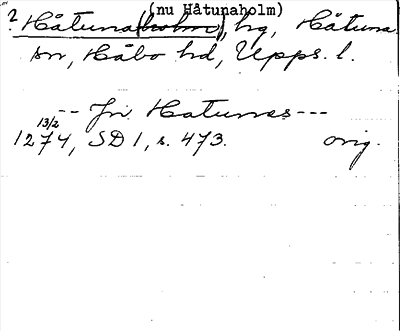 (nu Håtunaholm)
? Håtuna(holm), hg, Håtuna
sn, Håbo hd, Upps. l.
-- Jn Hatunes---
13/2
1274, SD 1, s. 473. orig.